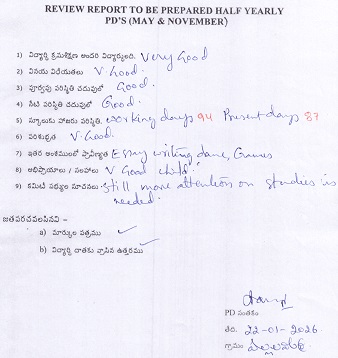 REVIEW REPORT TO BE PREPARED HALF YEARLY
PD'S (MAY & NOVEMBER)
1) విద్యార్థి క్రమశిక్షణ అందరి విద్యార్థులది. Very Good
2) వినయ విధేయతలు V. Good.
3) పూర్వపు పరిస్థితి చదువులో Good.
4) నేటి పరిస్థితి చదువులో Good.
5) స్కూలుకు హాజరు పరిస్థితి. working days 94 Present days 87
6) పరిశుభ్రత V. Good.
7) ఇతర అంశములలో ప్రావీణ్యత Essay writing dance, Games
8) అభిప్రాయాలు / సలహాలు V Good child.
9) కమిటీ సభ్యుల సూచనలు Still more attention on studies is
needed.
జతపరచవలసినవి –
a) మార్కుల పత్రము ✓
b) విద్యార్థి దాతకు వ్రాసిన ఉత్తరము ✓
PD సంతకం
తేది. 22-01-2026
గ్రామం